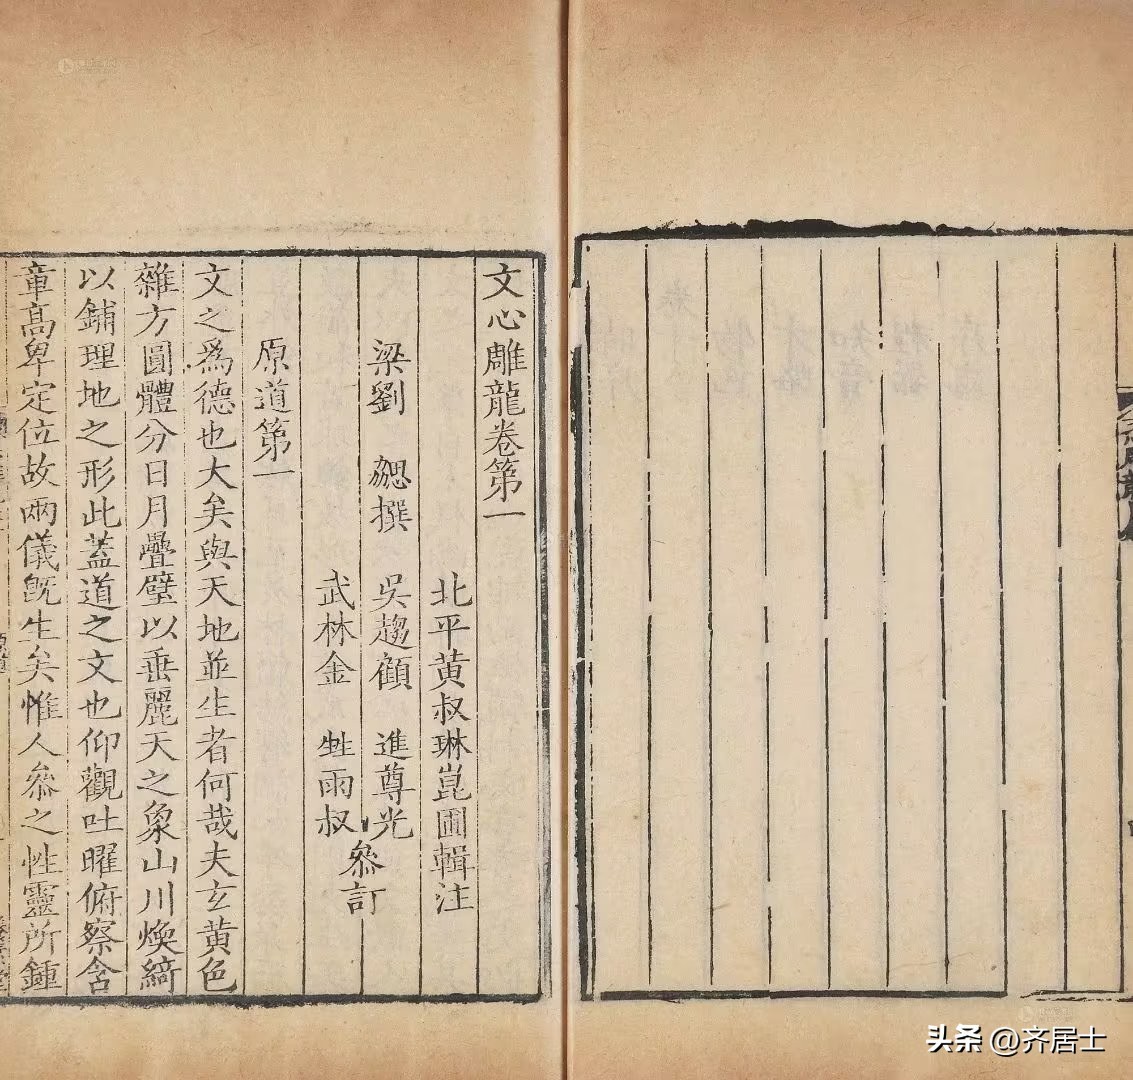 文心雕龍卷第一
北平黃叔琳崑圃輯注
梁劉勰撰 吳趨顧進尊光
武林金甡雨叔
叅訂
原道第一
文之爲德也大矣與天地並生者何哉夫玄黃色
雜方圓體分日月疊璧以垂麗天之象山川煥綺
以鋪理地之形此蓋道之文也仰觀吐曜俯察含
章高卑定位故兩儀旣生矣惟人叅之性靈所鍾
头条 @齐居士